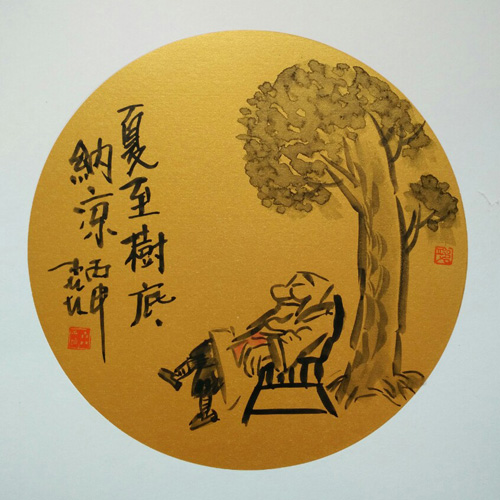 夏至樹底
納涼
丙申